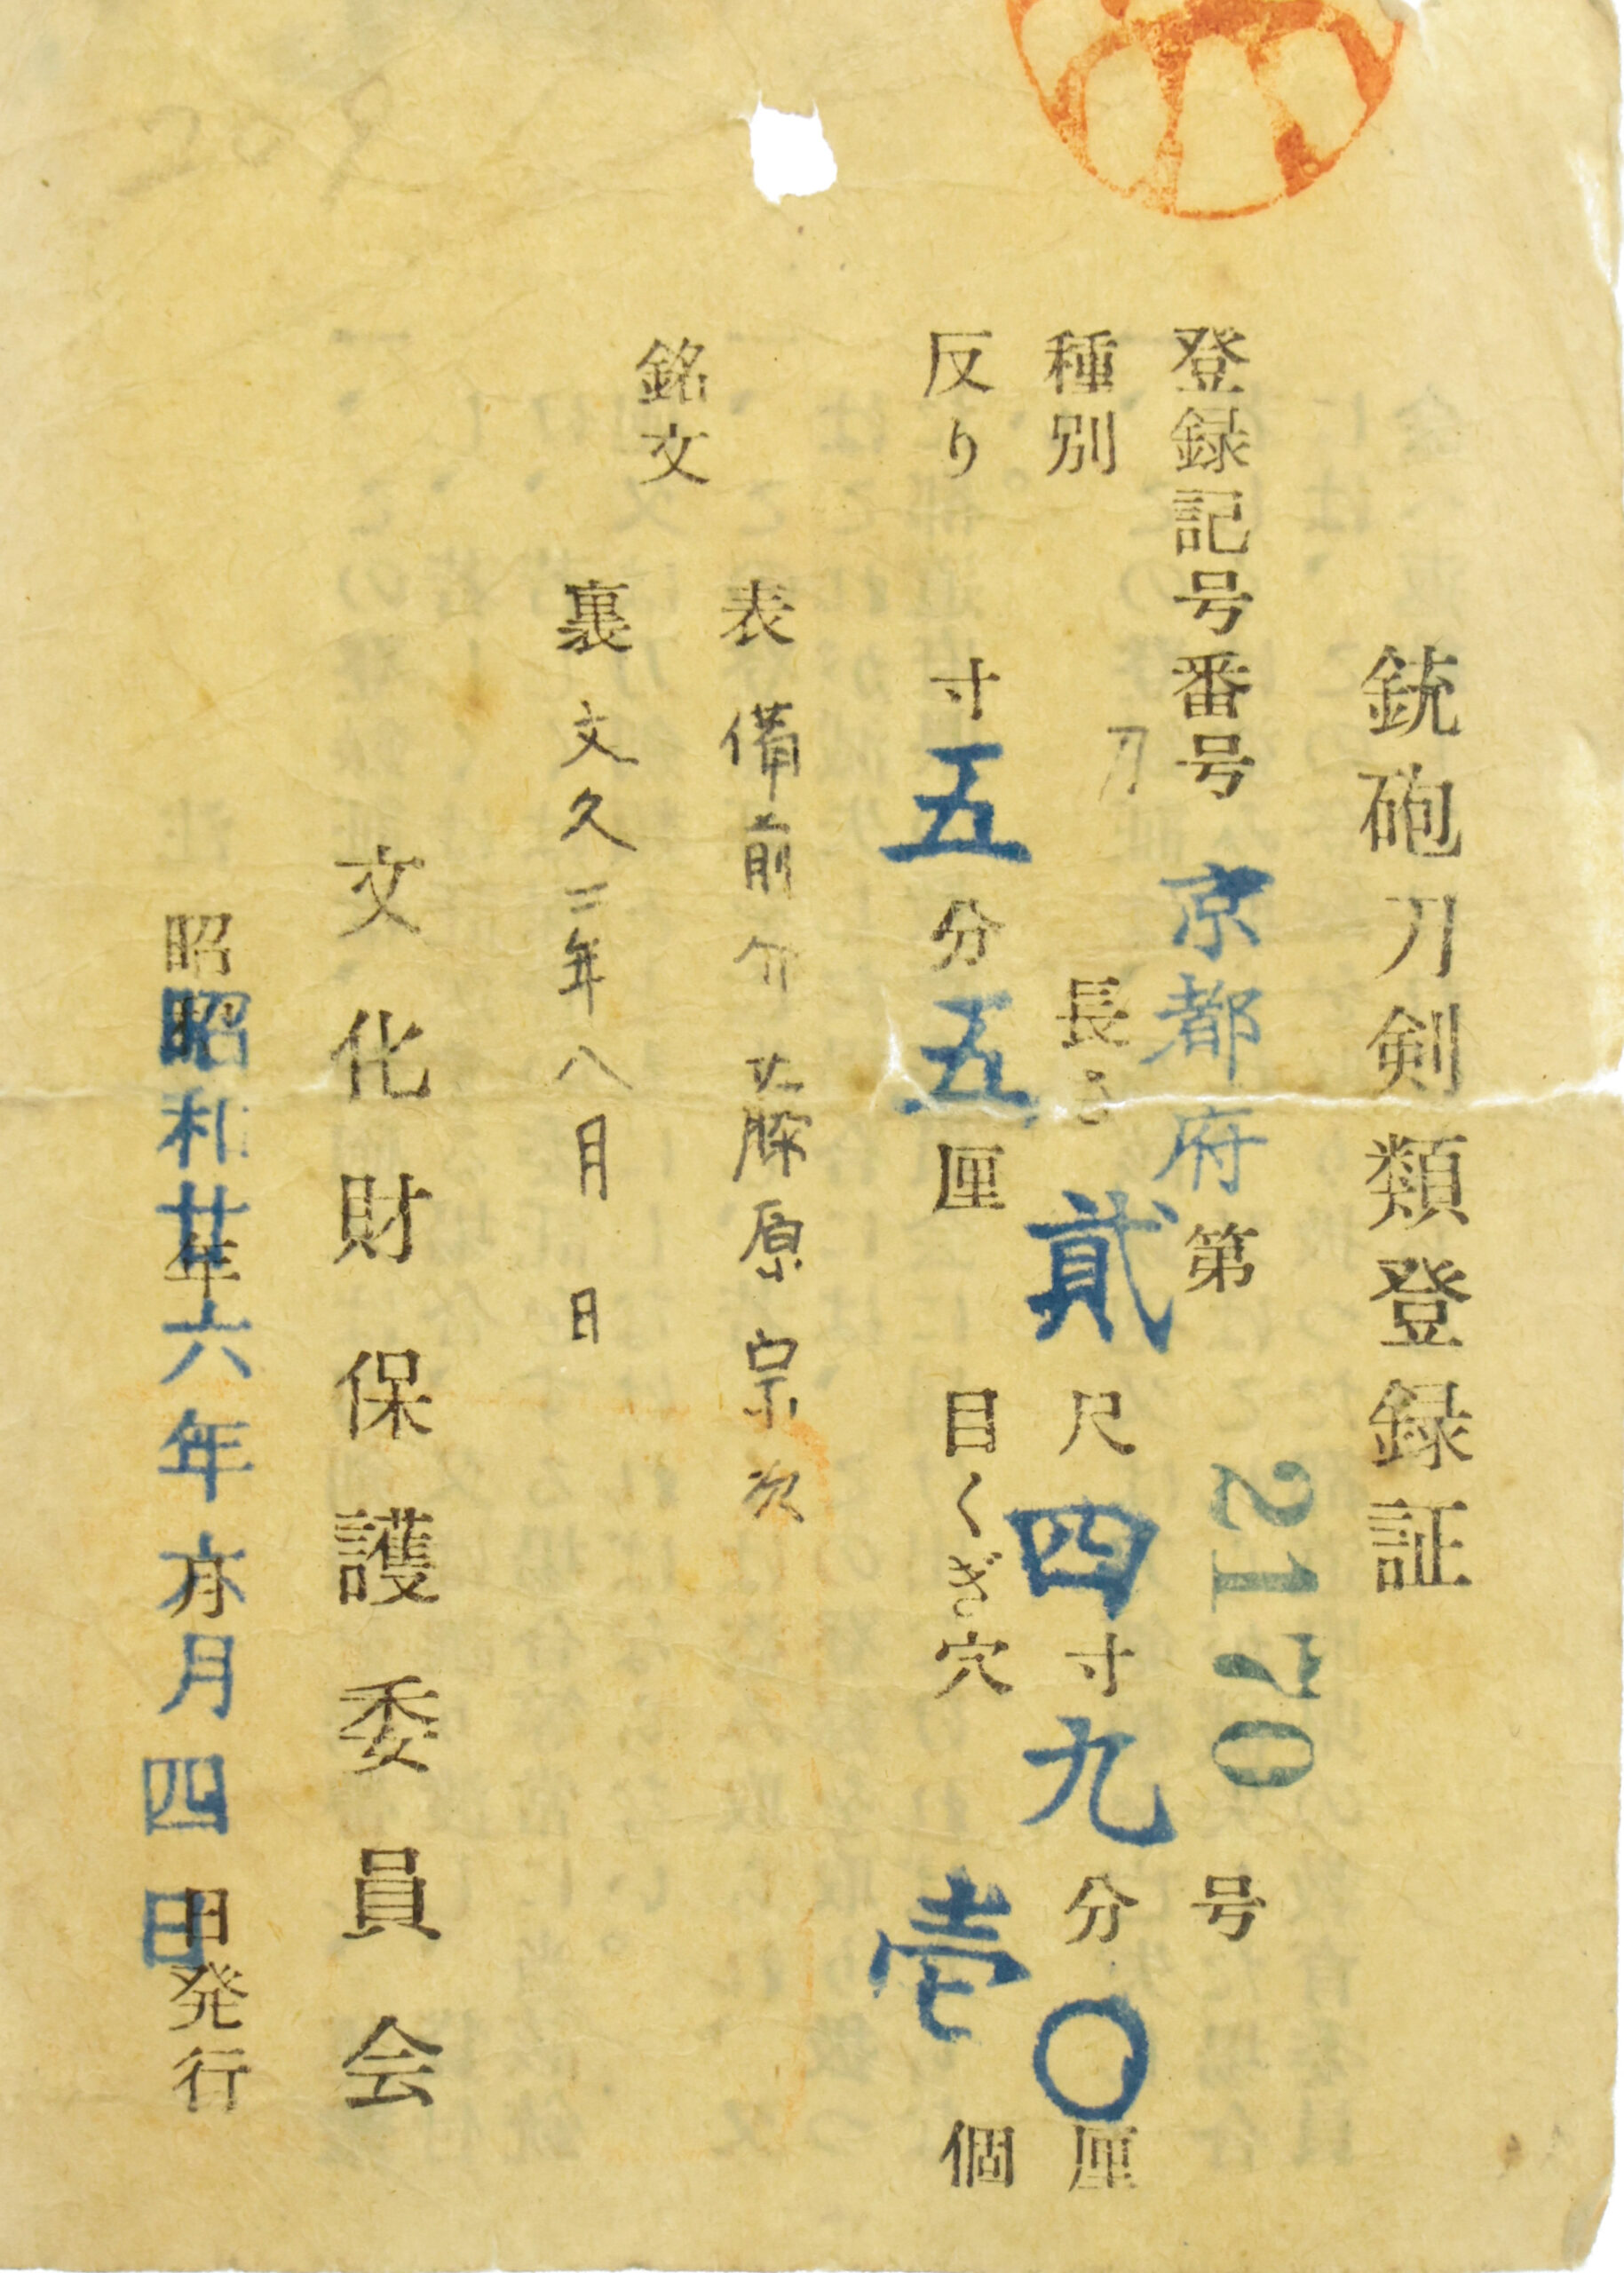 銃砲刀剣類登録証
登録記号番号 京都府 第 2170 号
種別 刀 長さ 貳尺四寸九分〇厘
反り 寸五分五厘 目くぎ穴 壱 個
銘文
表 備前介藤原宗次
裏 文久二年八月 日
文化財保護委員会
昭和廿六年六月四日発行
209